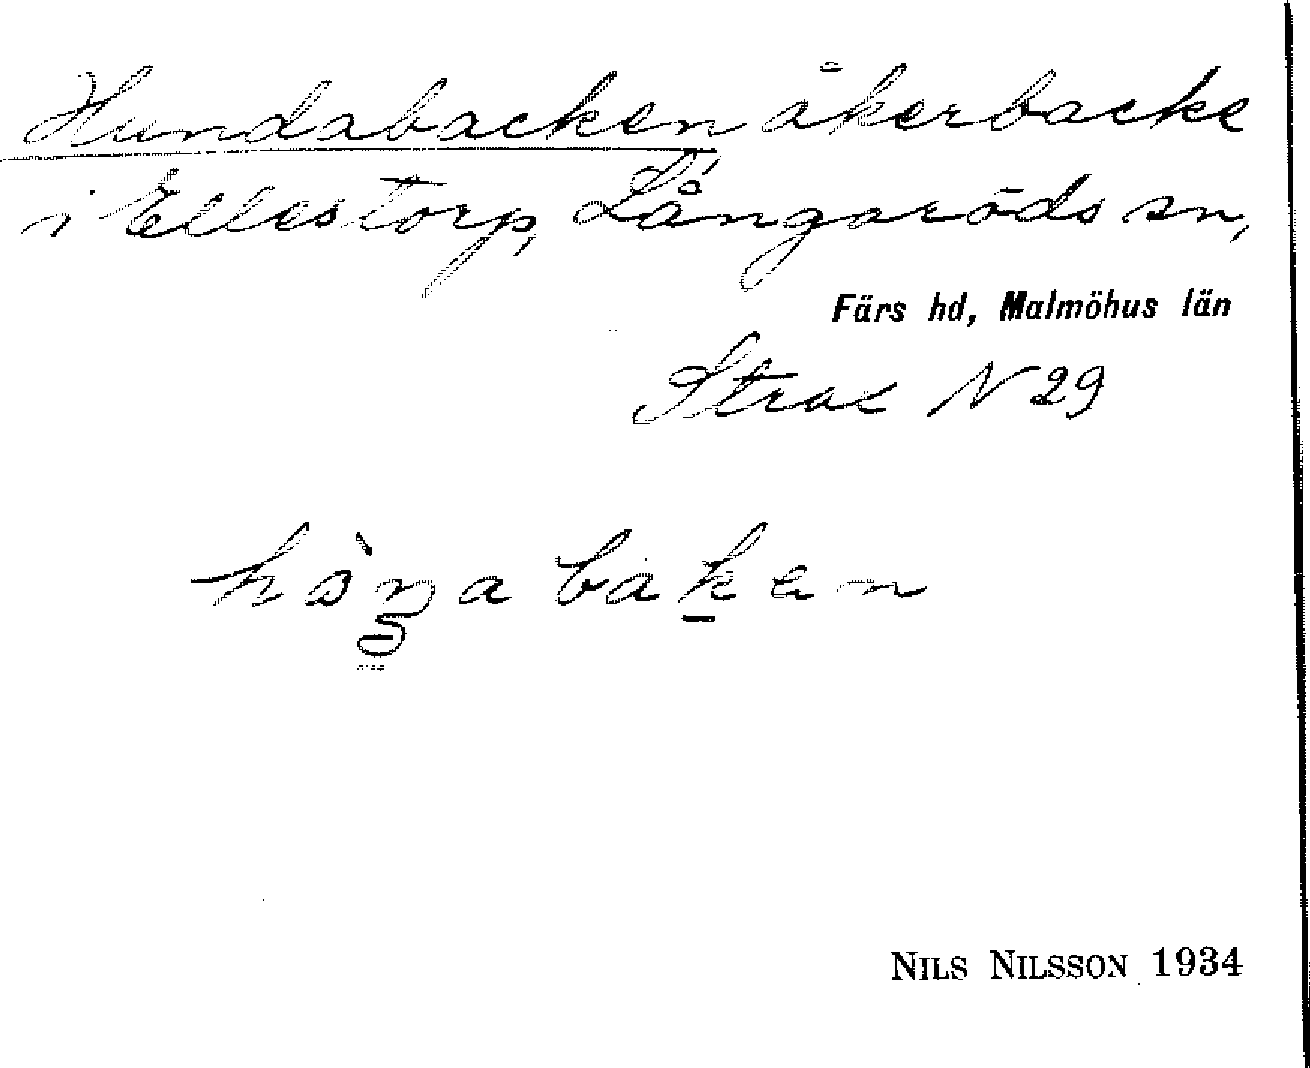 Hundabacken åkerbacke
i Ellestorp, Långaröds sn,
Färs hd, Malmöhus län
N 29
NILS NILSSON 1934